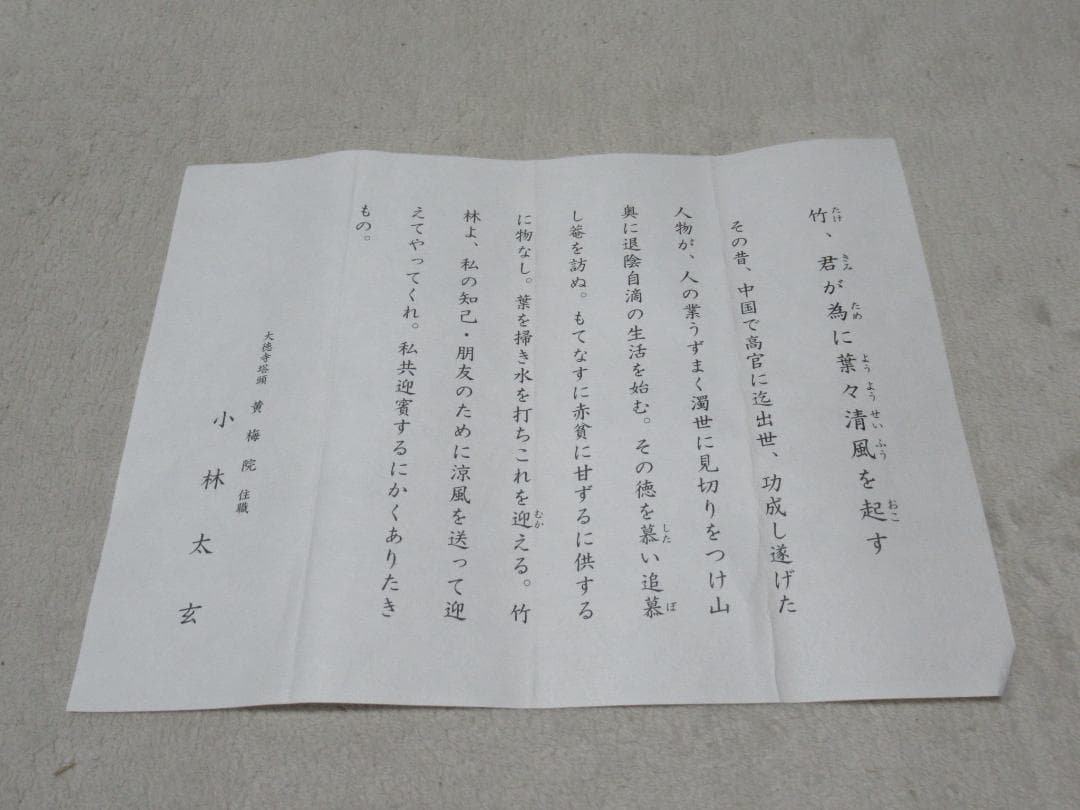 竹、君が為に葉々清風を起す
その昔、中国で高官に迄出世、功成し遂げた
人物が、人の業うずまく濁世に見切りをつけ山
奥に退陰自滴の生活を始む。その徳を慕い追慕
し菴を訪ぬ。もてなすに赤貧に甘ずるに供する
に物なし。葉を掃き水を打ちこれを迎える。竹
林よ、私の知己・朋友のために涼風を送って迎
えてやってくれ。私共迎賓するにかくありたき
もの。
大徳寺塔頭 黄梅院 住職
小林太玄